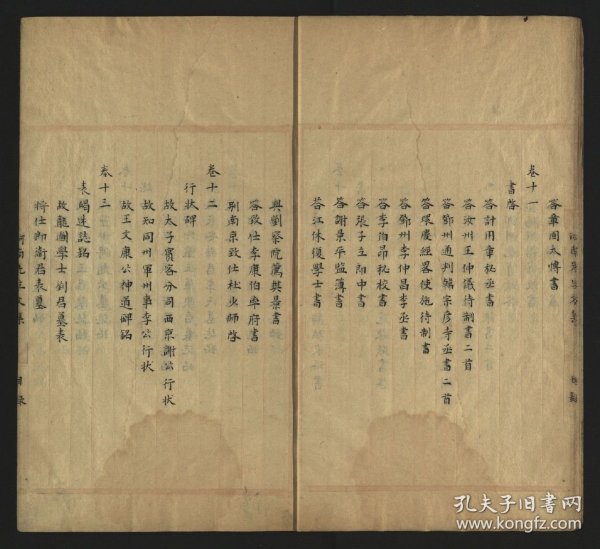 答韋國太博書
卷十一
書啓
答計用章秘丞書
答汝州王仲儀待制書二首
答鄧州通判韓宗彥寺丞書二首
答環慶經畧使施待制書
答鄭州李仲昌李丞書
答李伯昂秘校書
答張子立郎中書
答謝景平監簿書
答江休復學士書
與劉察院薦樊景書
答致仕李康伯率府書
別南京致仕杜少師啓
卷十二
行狀碑
故太子賓客分司西京謝公行狀
故知同州軍州事李公行狀
故王文康公神道碑銘
卷十三
表碣述誌銘
故龍圖學士劉君墓表
將仕郎衛君表墓
目錄
孔夫子旧书网
www.kongfz.com